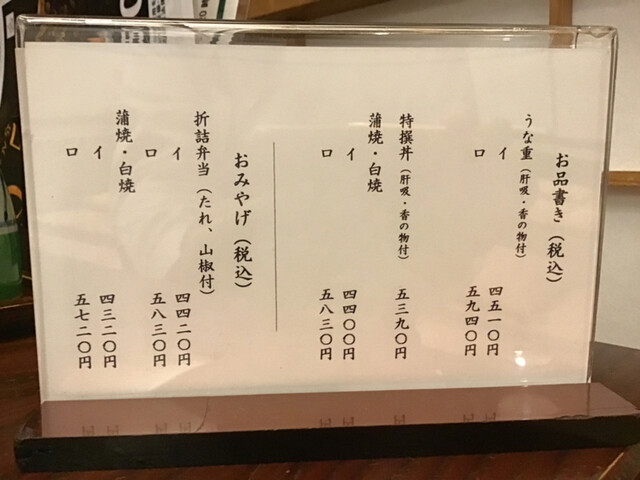 お品書き（税込）
うな重（肝吸・香の物付）
イ 四五一〇円
ロ 五九四〇円
特撰丼（肝吸・香の物付） 五三九〇円
蒲焼・白焼
イ 四四〇〇円
ロ 五八三〇円
おみやげ（税込）
折詰弁当（たれ、山椒付）
イ 四四二〇円
ロ 五八三〇円
蒲焼・白焼
イ 四三二〇円
ロ 五七二〇円